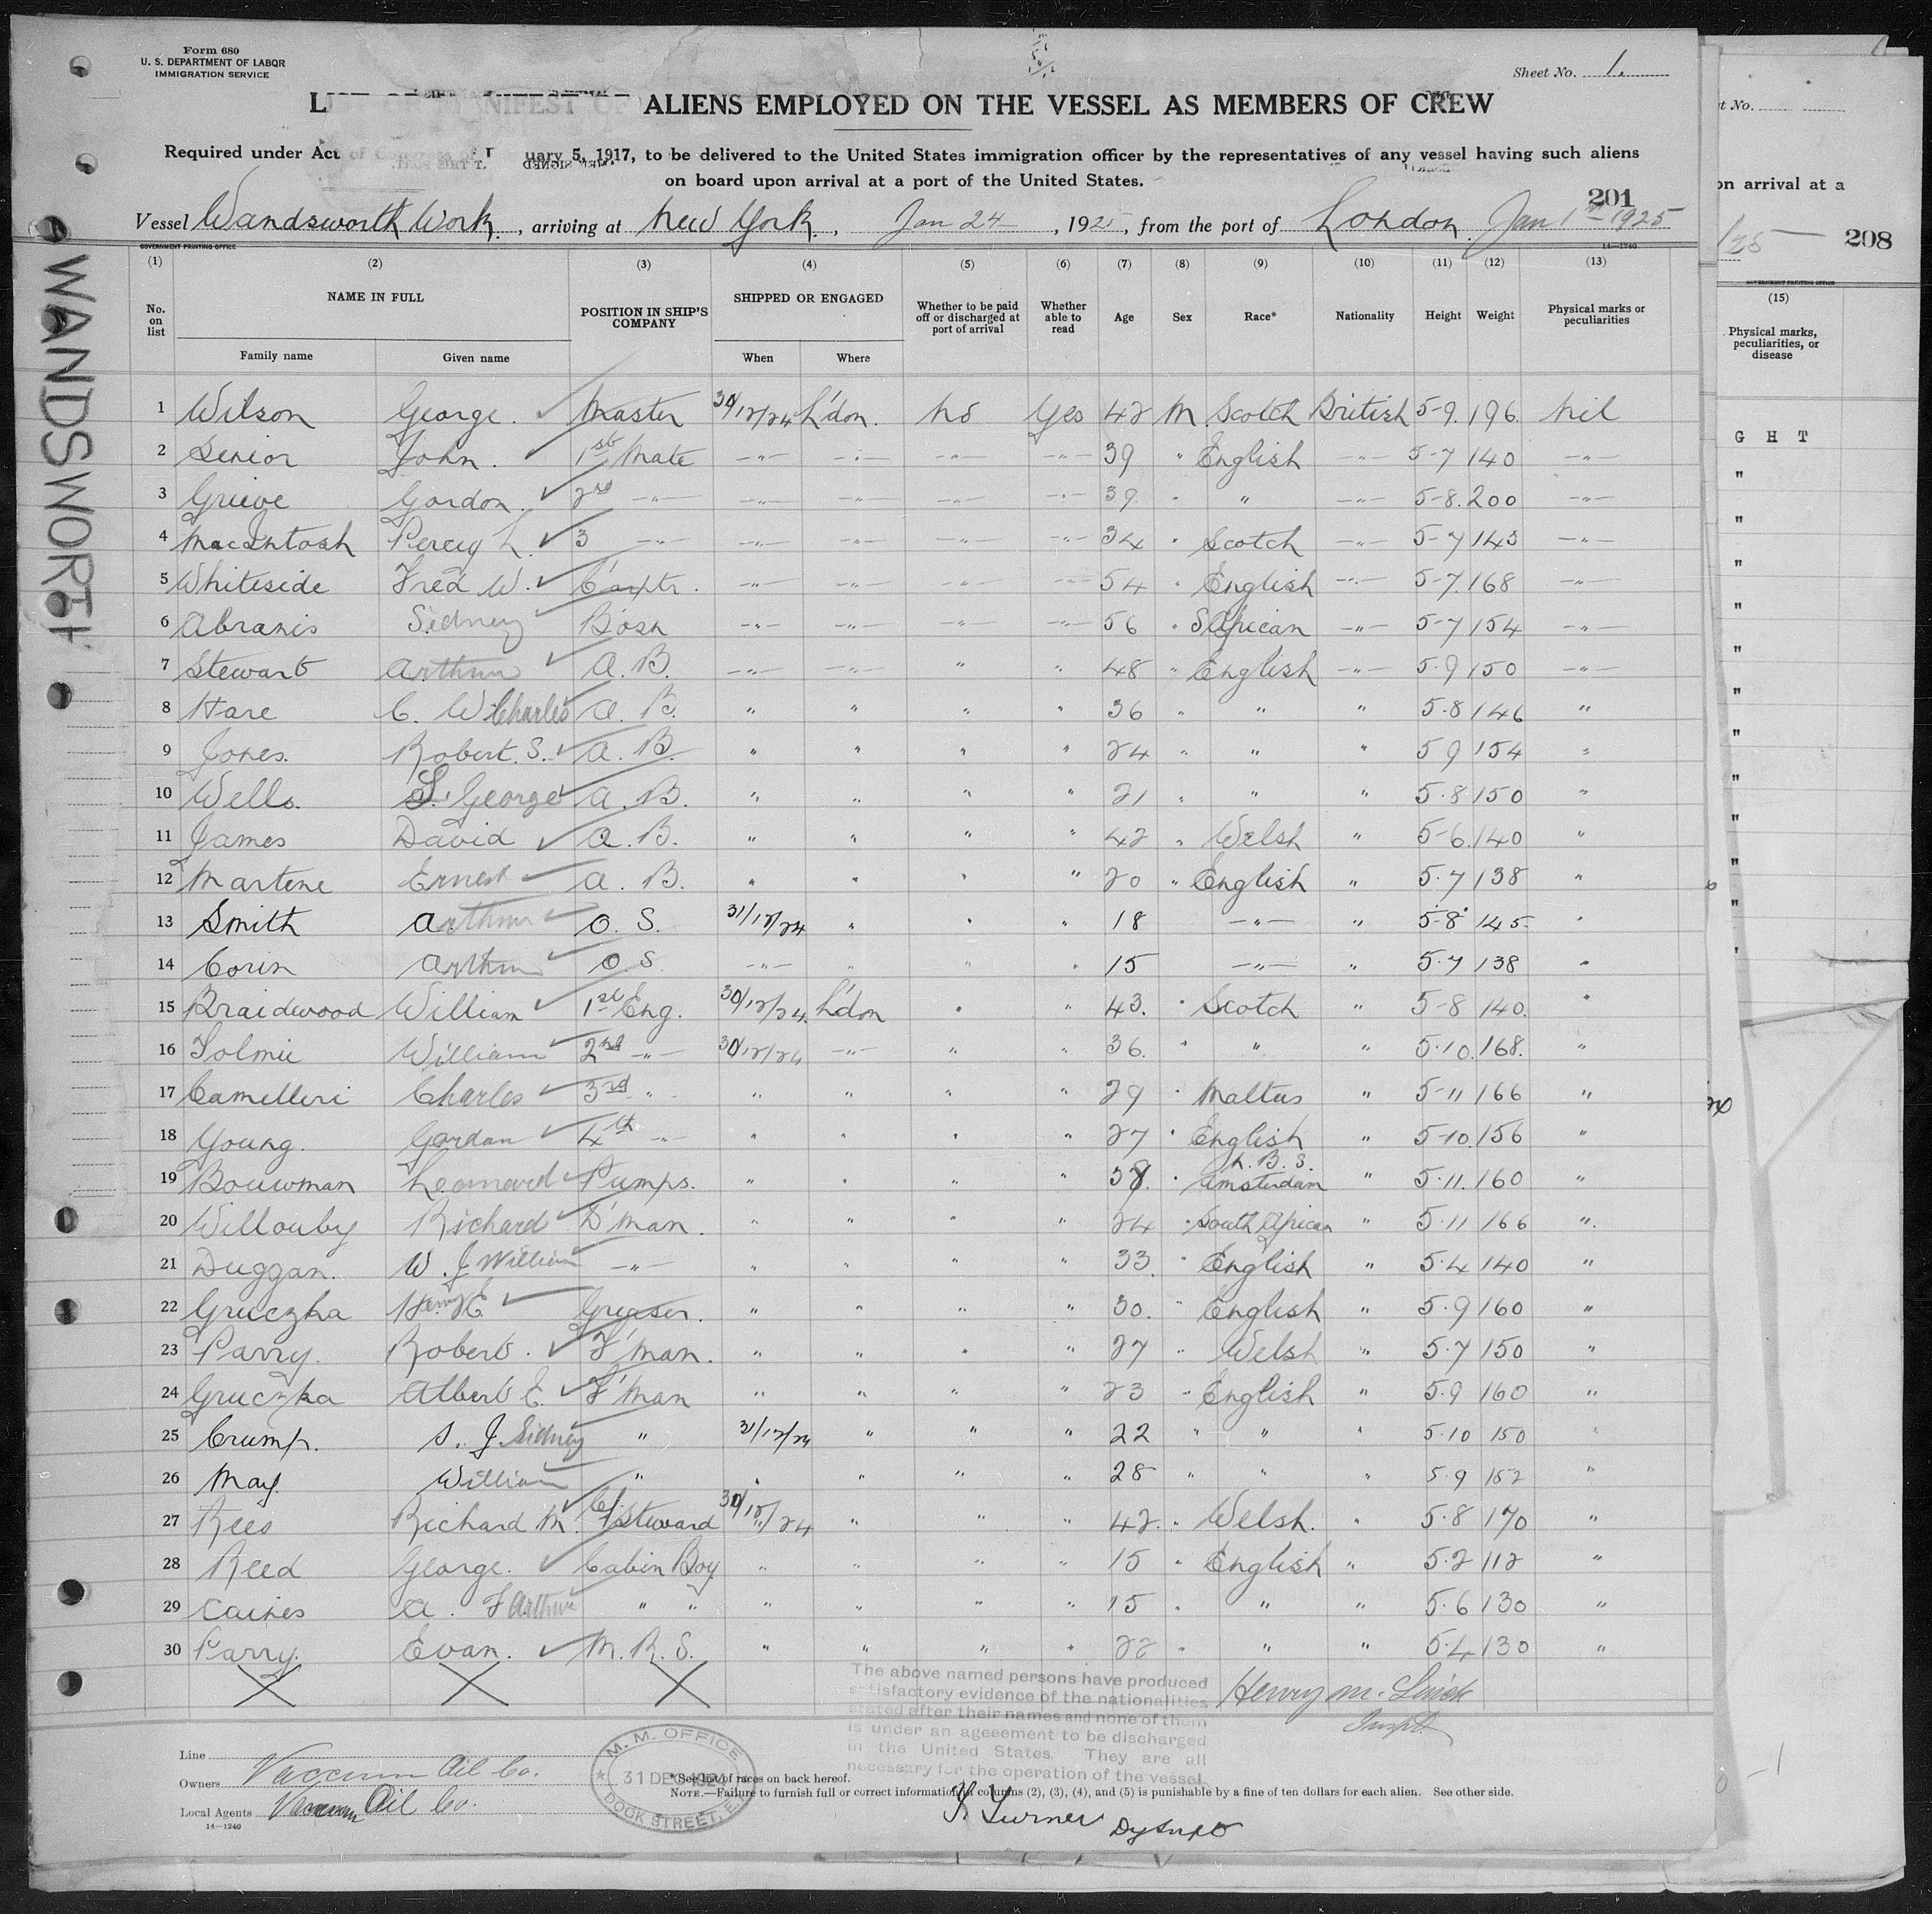 Form 680
U. S. DEPARTMENT OF LABOR
IMMIGRATION SERVICE
Sheet No. 1.
ALIENS EMPLOYED ON THE VESSEL AS MEMBERS OF CREW
Required under Act of uary 5, 1917, to be delivered to the United States immigration officer by the representatives of any vessel having such aliens
on board upon arrival at a port of the United States.
201
Vessel Wandsworth Work., arriving at New York., Jan 24, 1925, from the port of London. Jan 1st 1925
GOVERNMENT PRINTING OFFICE 14—1240
(1) (2) (3) (4) (5) (6) (7) (8) (9) (10) (11) (12) (13)
No. on list NAME IN FULL POSITION IN SHIP'S COMPANY SHIPPED OR ENGAGED Whether to be paid off or discharged at port of arrival Whether able to read Age Sex Race* Nationality Height Weight Physical marks or peculiarities
Family name Given name When Where
1 Wilson George. Master 30/12/24 L'don. No Yes 42 M. Scotch British 5-9. 196. Nil
2 Senior John. 1st Mate -"- -"- -"- -"- 39 " English -"- 5-7 140 -"-
3 Grieve Gordon. 2nd -"- -"- -"- -"- -"- 39. " " -"- 5-8. 200 -"-
4 MacIntosh Percy L. 3 -"- -"- -"- -"- -"- 34 " Scotch -"- 5-7 143 -"-
5 Whiteside Fred W. C'arptr. -"- -"- -"- -"- 54 " English -"- 5-7. 168 -"-
6 Abramis Sidney Bo'sn -"- -"- -"- -"- 56 " S African -"- 5-7 154 -"-
7 Stewart Arthur A. B. -"- -"- " " 48 " English -"- 5.9 150 -"-
8 Hare C. W Charles A. B. " " " " 36 " " " 5.8 146 "
9 Jones. Robert. S. A. B. " " " " 24 " " " 5 9 154 "
10 Wells. George A. B. " " " " 21 " " " 5.8 150 "
11 James David A. B. " " " " 42 " Welsh " 5-6. 140 "
12 Martene Ernest A. B. " " " " 20 " English " 5.7 138 "
13 Smith Arthur O. S. 31/12/24 " " " 18 -"- " 5-8 145. "
14 Corin Arthur O. S. -"- " " " 15 -"- " 5.7 138 "
15 Braidwood William 1st Eng. 30/12/24. L'don " " 43. " Scotch " 5-8 140. "
16 Tolmie William 2nd -"- 30/12/24 -"- " " 36. " " " 5.10. 168. "
17 Camelleri Charles 3rd " " " " " 29 " Maltus " 5-11 166 "
18 Young. Gordon 4th -"- " " " " 27 " English " 5-10. 156 "
19 Bouwman Leonard Pumps. " " " " 38. " L. B. S. Amsterdam " 5.11. 160 "
20 Willouby Richard D'man. " " " " 24 " South African " 5.11 166 "
21 Duggan. W. J William -"- " " " " 33. " English " 5.4 140 "
22 Gruczka Henry E Greaser. " " " " 30. " English " 5.9 160 "
23 Parry. Robert. F'man. " " " " 27 " Welsh " 5.7 150 "
24 Gruczka Albert E. F'man " " " " 23 " English " 5.9 160 "
25 Crump. S. J. Sidney " 31/12/24 " " " 22 " " " 5.10 150 "
26 May. William " " " " " 28 " " " 5.9 152 "
27 Rees Richard M. Cf Steward 30/12/24 " " " 42. " Welsh. " 5.8 170 "
28 Reed George. Cabin Boy " " " 15 " English " 5.2 112 "
29 Caines A. F Arthur " " " " " " 15 " " " 5.6 130 "
30 Parry. Evan. M. R. S. " " " " 22 " " " 5.4 130 "
X X X
The above named persons have produced
satisfactory evidence of the nationalities
stated after their names and none of them
is under an ageeement to be discharged
in the United States. They are all
necessary for the operation of the vessel.
Henry M.
Line
Owners Vaccum Oil Co.
Local Agents Vaccum Oil Co.
14—1240
M. M. OFFICE
31 DEC 1924
DOCK STREET, E.
* See list of races on back hereof.
NOTE.—Failure to furnish full or correct information in columns (2), (3), (4), and (5) is punishable by a fine of ten dollars for each alien. See other side.
Turner
WANDSWORTH
t No.
on arrival at a
/25 208
GOVERNMENT PRINTING OFFICE
(15)
Physical marks, peculiarities, or disease
G H T
"
"
"
"
"
"
"
"
"
"
"
"